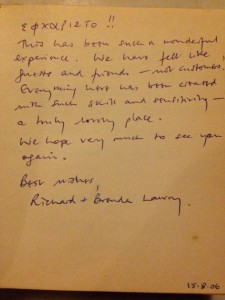 ΕΦΧΑΡΙΣΤΟ !!
This has been such a wonderful
experience. We have felt like
guests and friends — not customers.
Everything here has been created
with such skill and sensitivity —
a truly lovely place.
We hope very much to see you
again.
Best wishes,
Richard + Brenda
15-8-06